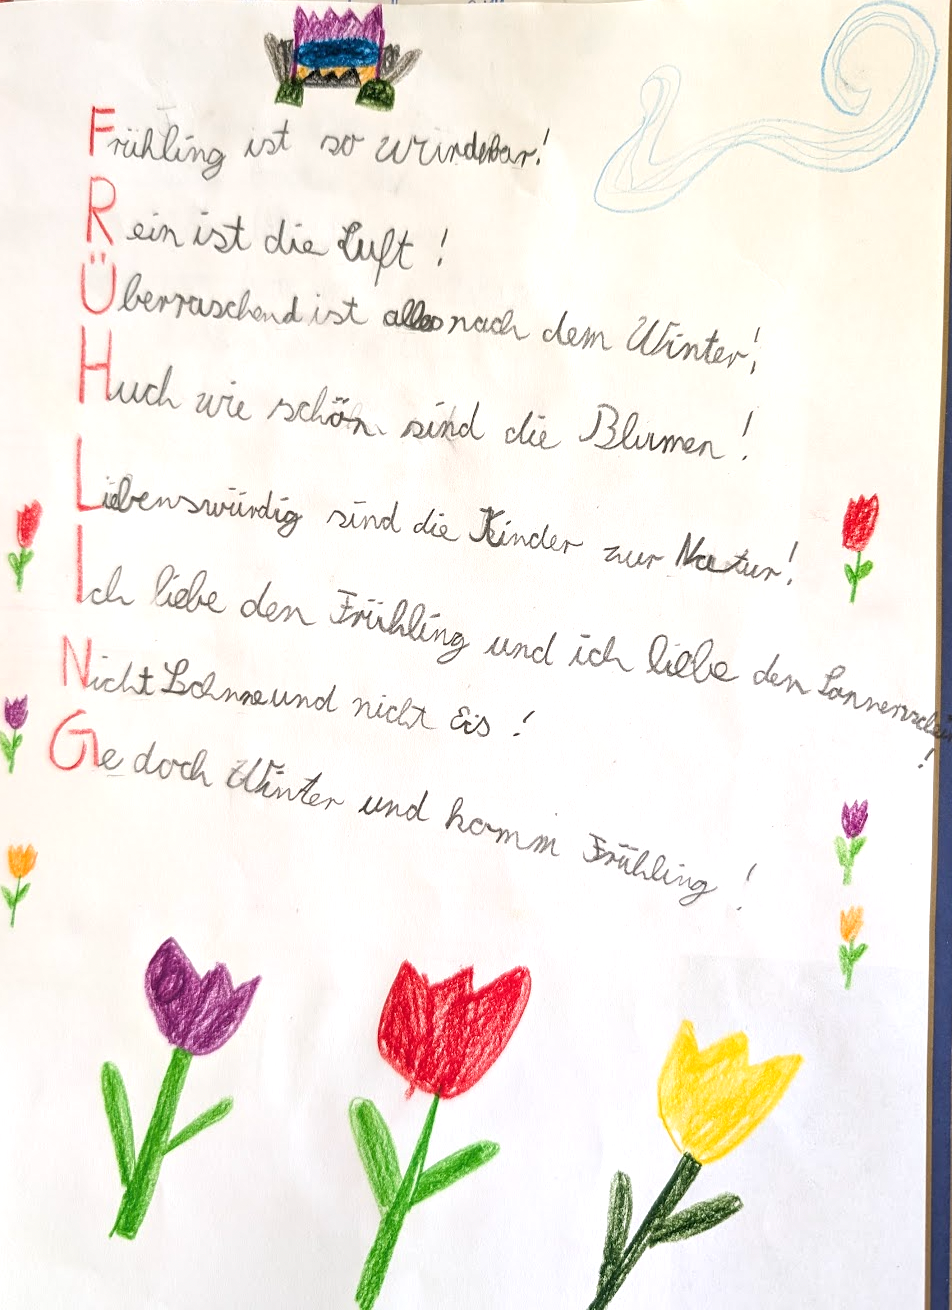 Frühling ist so wunderbar!
Rein ist die Luft!
Überraschend ist alles nach dem Winter!
Huch wie schön sind die Blumen!
Liebenswürdig sind die Kinder zur Natur!
Ich liebe den Frühling und ich liebe den Sonnenschein!
Nicht Schnne und nicht Eis!
Ge doch Winter und komm Frühling!